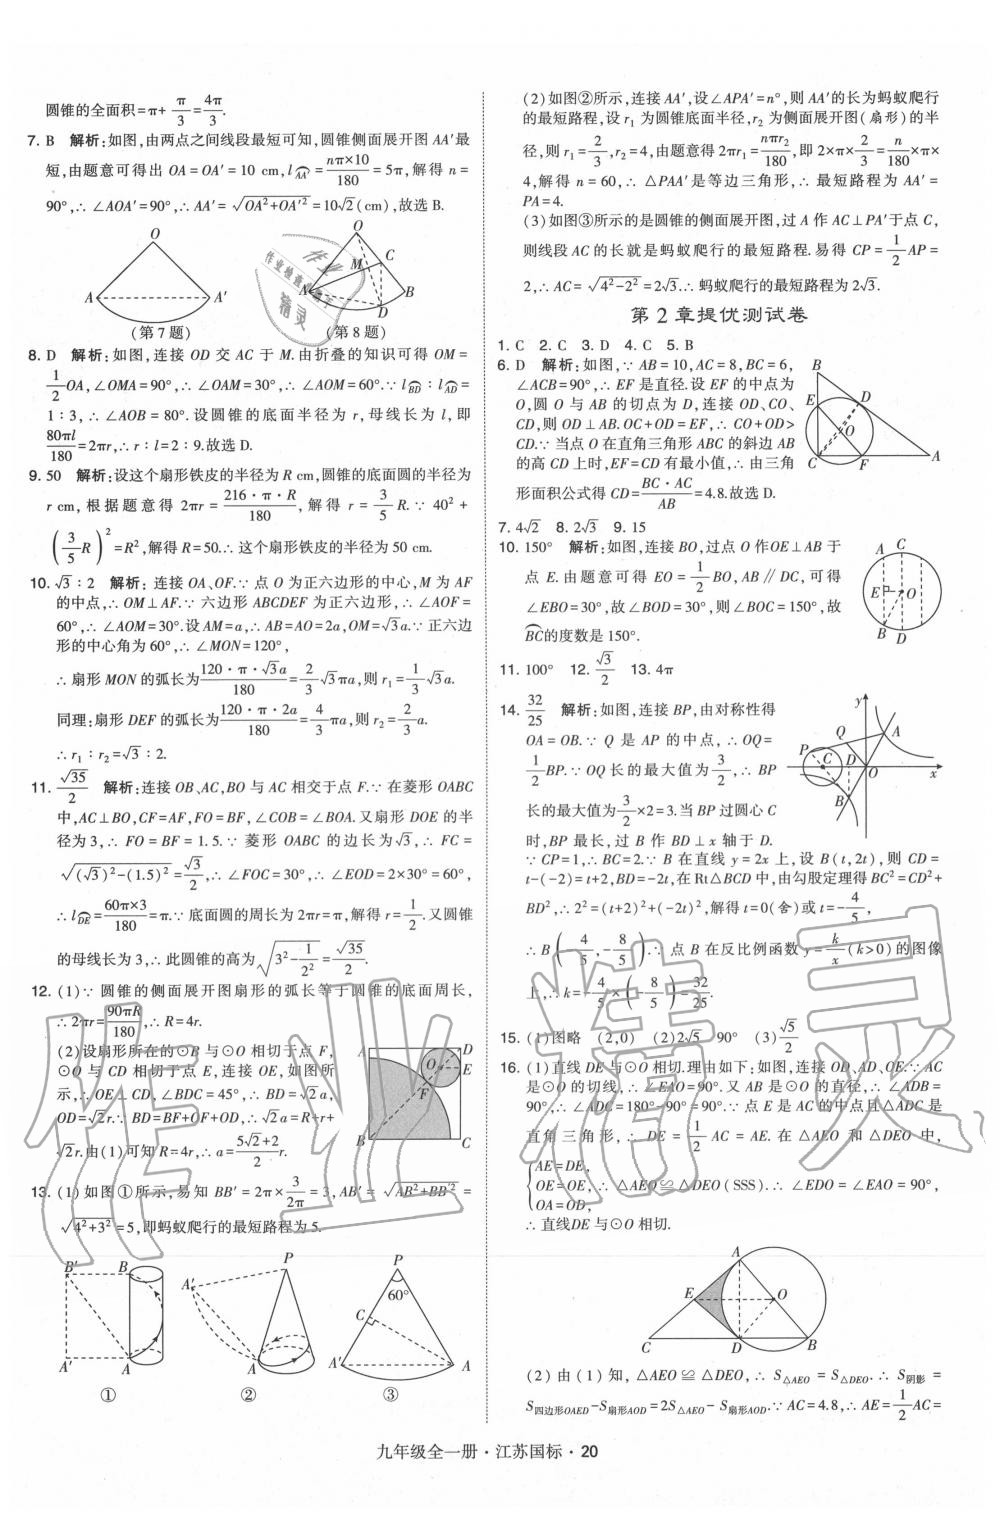 圆锥的全面积=π+π/3=4π/3.
7. B 解析:如图,由两点之间线段最短可知,圆锥侧面展开图 AA′最
短,由题意可得出 OA=OA′=10 cm,l⌒AA′=nπ×10/180=5π,解得 n=
90°,∴∠AOA′=90°,∴AA′=√(OA²+OA′²)=10√2(cm),故选B.
O
A
A′
(第7题)
O
M
C
A
B
D
(第8题)
8. D 解析:如图,连接 OD 交 AC 于 M.由折叠的知识可得 OM=
1/2OA,∠OMA=90°,∴∠OAM=30°,∴∠AOM=60°.∵l⌒BD∶l⌒AD=
1∶3,∴∠AOB=80°.设圆锥的底面半径为r,母线长为l,即
80πl/180=2πr,∴r∶l=2∶9.故选D.
9. 50 解析:设这个扇形铁皮的半径为R cm,圆锥的底面圆的半径为
r cm,根据题意得 2πr=216·π·R/180,解得 r=3/5R.∵40²+
(3/5R)²=R²,解得R=50.∴这个扇形铁皮的半径为50 cm.
10. √3∶2 解析:连接OA、OF.∵点O为正六边形的中心,M为AF
的中点,∴OM⊥AF.∵六边形ABCDEF为正六边形,∴∠AOF=
60°,∴∠AOM=30°.设AM=a,∴AB=AO=2a,OM=√3a.∵正六边
形的中心角为60°,∴∠MON=120°,
∴扇形MON的弧长为120·π·√3a/180=2/3√3πa,则r₁=1/3√3a.
同理:扇形DEF的弧长为120·π·2a/180=4/3πa,则r₂=2/3a.
∴r₁∶r₂=√3∶2.
11. √35/2 解析:连接OB、AC,BO与AC相交于点F.∵在菱形OABC
中,AC⊥BO,CF=AF,FO=BF,∠COB=∠BOA.又扇形DOE的半
径为3,∴FO=BF=1.5.∵菱形OABC的边长为√3,∴FC=
√((√3)²-(1.5)²)=√3/2,∴∠FOC=30°,∴∠EOD=2×30°=60°,
∴l⌒DE=60π×3/180=π.∵底面圆的周长为2πr=π,解得r=1/2.又圆锥
的母线长为3,∴此圆锥的高为√(3²-1/2²)=√35/2.
12. (1)∵圆锥的侧面展开图扇形的弧长等于圆锥的底面周长,
∴2πr=90πR/180,∴R=4r.
(2)设扇形所在的⊙B与⊙O相切于点F,
⊙O与CD相切于点E,连接OE,如图所
示,∴OE⊥CD,∠BDC=45°,∴BD=√2a,
OD=√2r.∵BD=BF+OF+OD,∴√2a=R+r+
√2r.由(1)可知R=4r,∴a=(5√2+2)/2r.
A
D
O
E
F
B
C
13. (1)如图①所示,易知BB′=2π×3/2π=3,AB′=√(AB²+BB′²)=
√(4²+3²)=5,即蚂蚁爬行的最短路程为5.
B′
B
A′
A
①
P
A′
A
②
P
60°
C
A′
A
③
(2)如图②所示,连接AA′,设∠APA′=n°,则AA′的长为蚂蚁爬行
的最短路程,设r₁为圆锥底面半径,r₂为侧面展开图(扇形)的半
径,则r₁=2/3,r₂=4,由题意得2πr₁=nπr₂/180,即2×π×2/3=n/180×π×
4,解得n=60,∴△PAA′是等边三角形,∴最短路程为AA′=
PA=4.
(3)如图③所示的是圆锥的侧面展开图,过A作AC⊥PA′于点C,
则线段AC的长就是蚂蚁爬行的最短路程.易得CP=1/2AP=
2,∴AC=√(4²-2²)=2√3.∴蚂蚁爬行的最短路程为2√3.
第2章提优测试卷
1. C 2. C 3. D 4. C 5. B
6. D 解析:如图,∵AB=10,AC=8,BC=6,
∠ACB=90°,∴EF是直径.设EF的中点为
O,圆O与AB的切点为D,连接OD、CO、
CD,则OD⊥AB.OC+OD=EF,∴CO+OD>
CD.∵当点O在直角三角形ABC的斜边AB
的高CD上时,EF=CD有最小值,∴由三角
形面积公式得CD=BC·AC/AB=4.8.故选D.
B
E
D
O
C
F
A
7. 4√2 8. 2√3 9. 15
10. 150° 解析:如图,连接BO,过点O作OE⊥AB于
点E.由题意可得EO=1/2BO,AB∥DC,可得
∠EBO=30°,故∠BOD=30°,则∠BOC=150°,故
⌒BC的度数是150°.
A C
E
O
B
D
11. 100° 12. √3/2 13. 4π
14. 32/25 解析:如图,连接BP,由对称性得
OA=OB.∵Q是AP的中点,∴OQ=
1/2BP.∵OQ长的最大值为3/2,∴BP
长的最大值为3/2×2=3.当BP过圆心C
时,BP最长,过B作BD⊥x轴于D.
y
Q
A
P
C
D
O
x
B
∵CP=1,∴BC=2.∵B在直线y=2x上,设B(t,2t),则CD=
t-(-2)=t+2,BD=-2t,在Rt△BCD中,由勾股定理得BC²=CD²+
BD²,∴2²=(t+2)²+(-2t)²,解得t=0(舍)或t=-4/5,
∴B(-4/5,-8/5).∵点B在反比例函数y=k/x(k>0)的图像
上,∴k=-4/5×(-8/5)=32/25.
15. (1)图略 (2,0) (2)2√5 90° (3)√5/2
16. (1)直线DE与⊙O相切.理由如下:如图,连接OD、AD、OE.∵AC
是⊙O的切线,∴∠EAO=90°.又AB是⊙O的直径,∴∠ADB=
90°,∴∠ADC=180°-90°=90°.∵点E是AC的中点且△ADC是
直角三角形,∴DE=1/2AC=AE.在△AEO和△DEO中,
{AE=DE,
OE=OE,∴△AEO≌△DEO(SSS).∴∠EDO=∠EAO=90°,
OA=OD,
∴直线DE与⊙O相切.
A
E
O
C
D
B
(2)由(1)知,△AEO≌△DEO,∴S△AEO=S△DEO.∴S阴影=
S四边形OAED-S扇形AOD=2S△AEO-S扇形AOD.∵AC=4.8,∴AE=1/2AC=
九年级全一册·江苏国标·20
作业精灵
作业
作业检查小助手
精灵